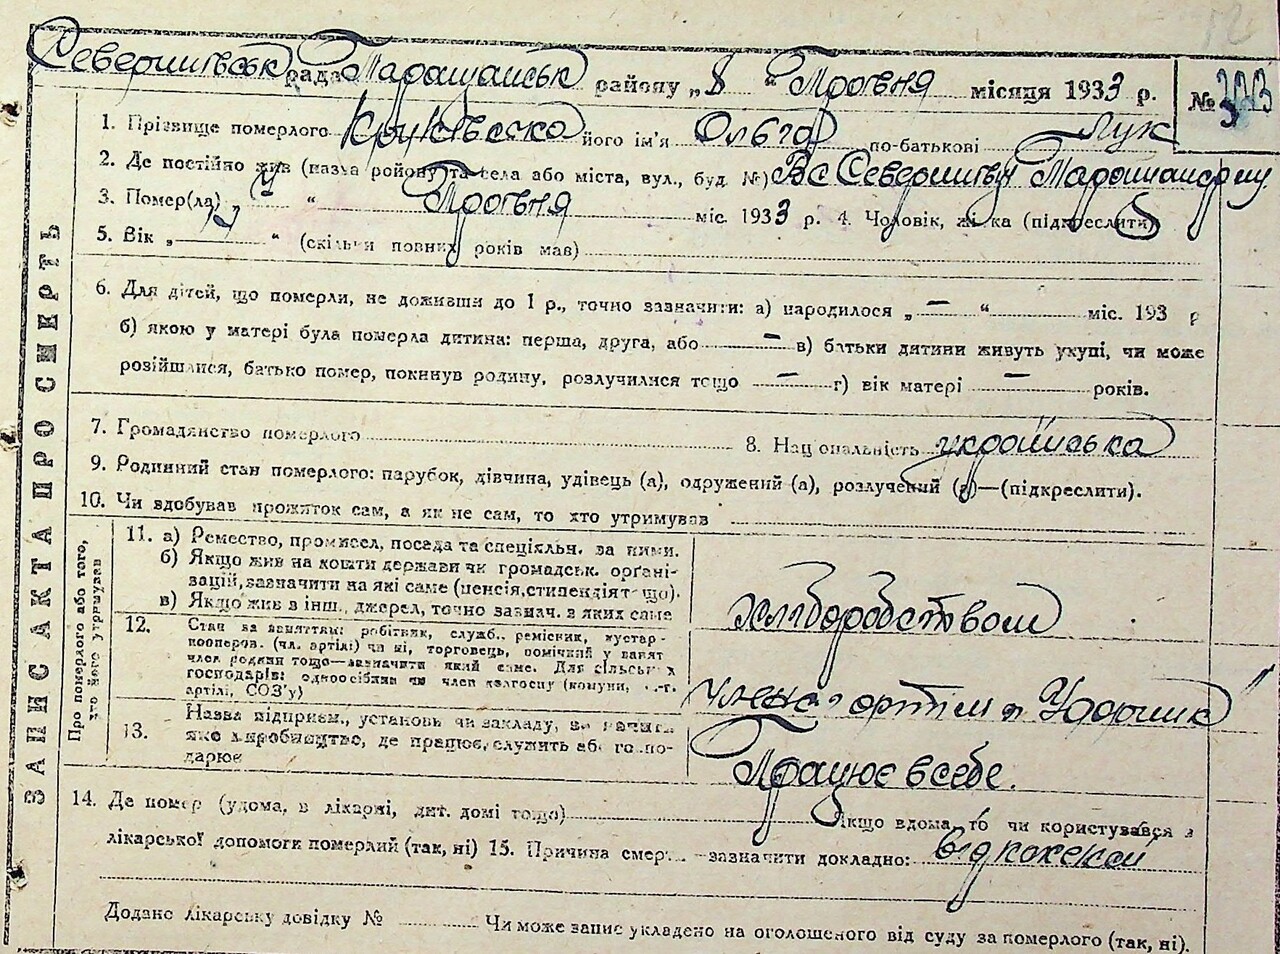 Северинівськ рада Таращанськ району „8 “ Травня місяця 1933 р. №
1. Прізвище померлого його ім'я Ольга по-батькові Лук
2. Де постійно жив (назва району та села або міста, вул., буд. №) Вс Северинівці
3. Помер(ла) „ “ Травня міс. 1933 р. 4. Чоловік, жінка (підкреслити)
5. Вік „ “ (скільки повних років мав)
6. Для дітей, що померли, не доживши до 1 р., точно зазначити: а) народилося „ — “ міс. 193 р
б) якою у матері була померла дитина: перша, друга, або — в) батьки дитини живуть укупі, чи може
розійшлися, батько помер, покинув родину, розлучилися тощо — г) вік матері — років.
7. Громадянство померлого 8. Національність українська
9. Родинний стан померлого: парубок, дівчина, удівець (а), одружений (а), розлучений (а)—(підкреслити).
10. Чи вдобував прожиток сам, а як не сам, то хто утримував
ЗАПИС АКТА ПРО СМЕРТЬ
Про померлого або того,
хто його утримував
11. а) Ремество, промисел, посада та спеціяльн. за ними.
б) Якщо жив на кошти держави чи громадськ. органі-
зацій, зазначити на які саме (пенсія, стипендія тощо).
в) Якщо жив в інш. джерел, точно зазнач. в яких саме
хліборобством
12. Стан за заняттям: робітник, служб., ремісник, кустар-
кооперов. (чл. артілі) чи ні, торговець, помічний у занят
член родини тощо—зазначити який саме. Для сільськ х
господарів: одноосібник чи член колгоспу (комуни, с.-г.
артілі, СОЗ'у)
член артілі Ударник
13. Назва підприєм., установи чи закладу, зазначити
яке виробництво, де працює, служить або госпо-
дарює
Працює в себе.
14. Де помер (удома, в лікарні, дит. домі тощо) Якщо вдома, то чи користувався з
лікарської допомоги померлий (так, ні) 15. Причина смерт зазначити докладно: від
Додано лікарську довідку № Чи може запис укладено на оголошеного від суду за померлого (так, ні).